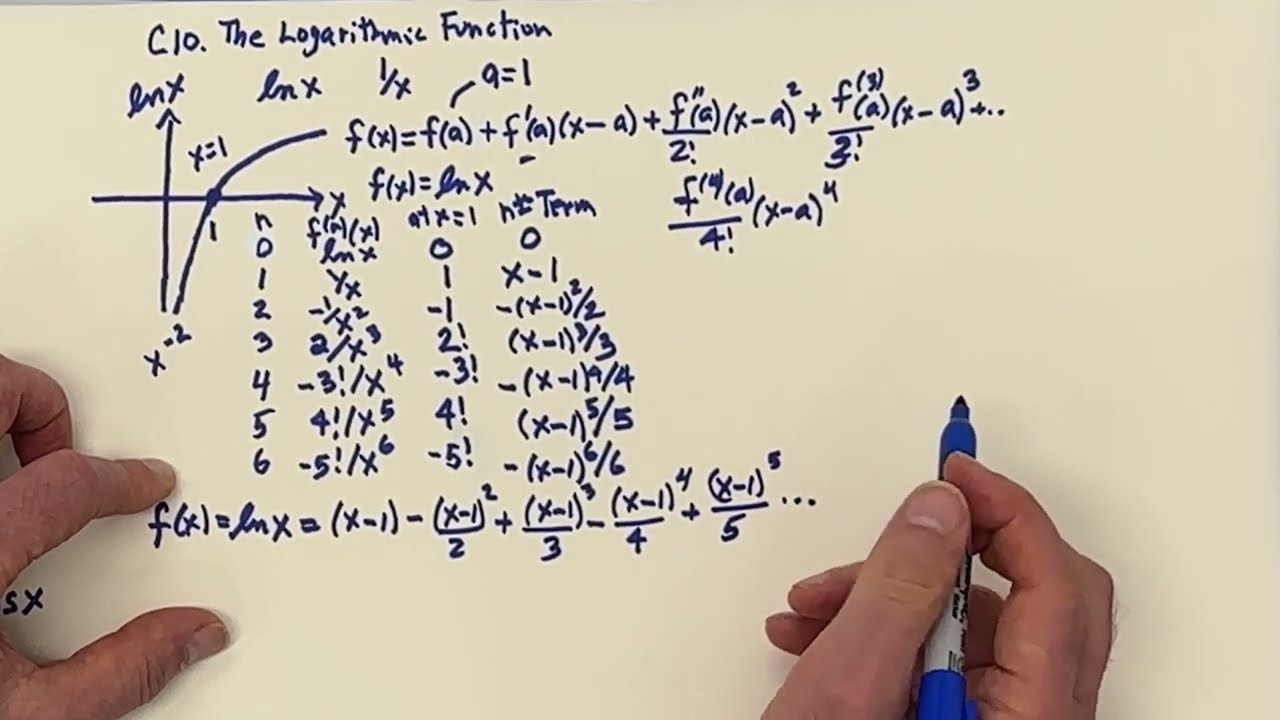 C10. The Logarithmic Function
ln x ln x 1/x a=1
f(x) = f(a) + f'(a)(x-a) + f''(a)/2! (x-a)² + f⁽³⁾(a)/3! (x-a)³ + ..
x=1
f(x) = ln x
f⁽⁴⁾(a)/4! (x-a)⁴
x
1
n f⁽ⁿ⁾(x) at x=1 nth Term
0 ln x 0 0
1 1/x 1 x-1
2 -1/x² -1 -(x-1)²/2
x⁻²
3 2/x³ 2! (x-1)³/3
4 -3!/x⁴ -3! -(x-1)⁴/4
5 4!/x⁵ 4! (x-1)⁵/5
6 -5!/x⁶ -5! -(x-1)⁶/6
f(x) = ln x = (x-1) - (x-1)²/2 + (x-1)³/3 - (x-1)⁴/4 + (x-1)⁵/5 ...
sx